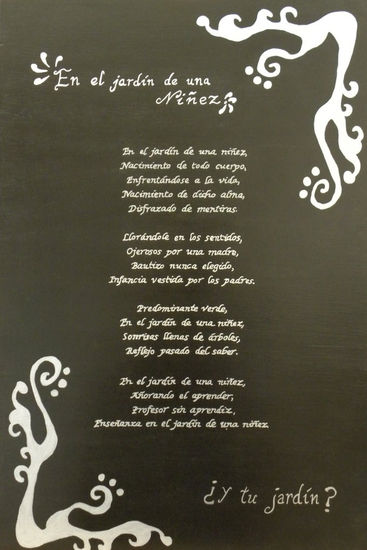 En el jardín de una
Niñez
En el jardín de una niñez,
Nacimiento de todo cuerpo,
Enfrentándose a la vida,
Nacimiento de dicho alma,
Disfrazado de mentiras.
Llorándole en los sentidos,
Ojerosos por una madre,
Bautizo nunca elegido,
Infancia vestida por los padres.
Predominante verde,
En el jardín de una niñez,
Sonrisas llenas de árboles,
Reflejo pasado del saber.
En el jardín de una niñez,
Añorando el aprender,
Profesor sin aprendiz,
Enseñanza en el jardín de una niñez.
¿y tu jardín?